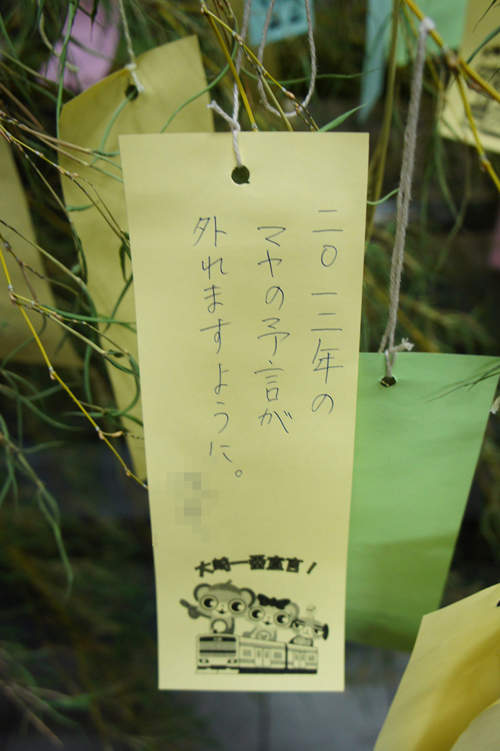 二〇一二年の
マヤの予言が
外れますように。
大崎一番宣言！